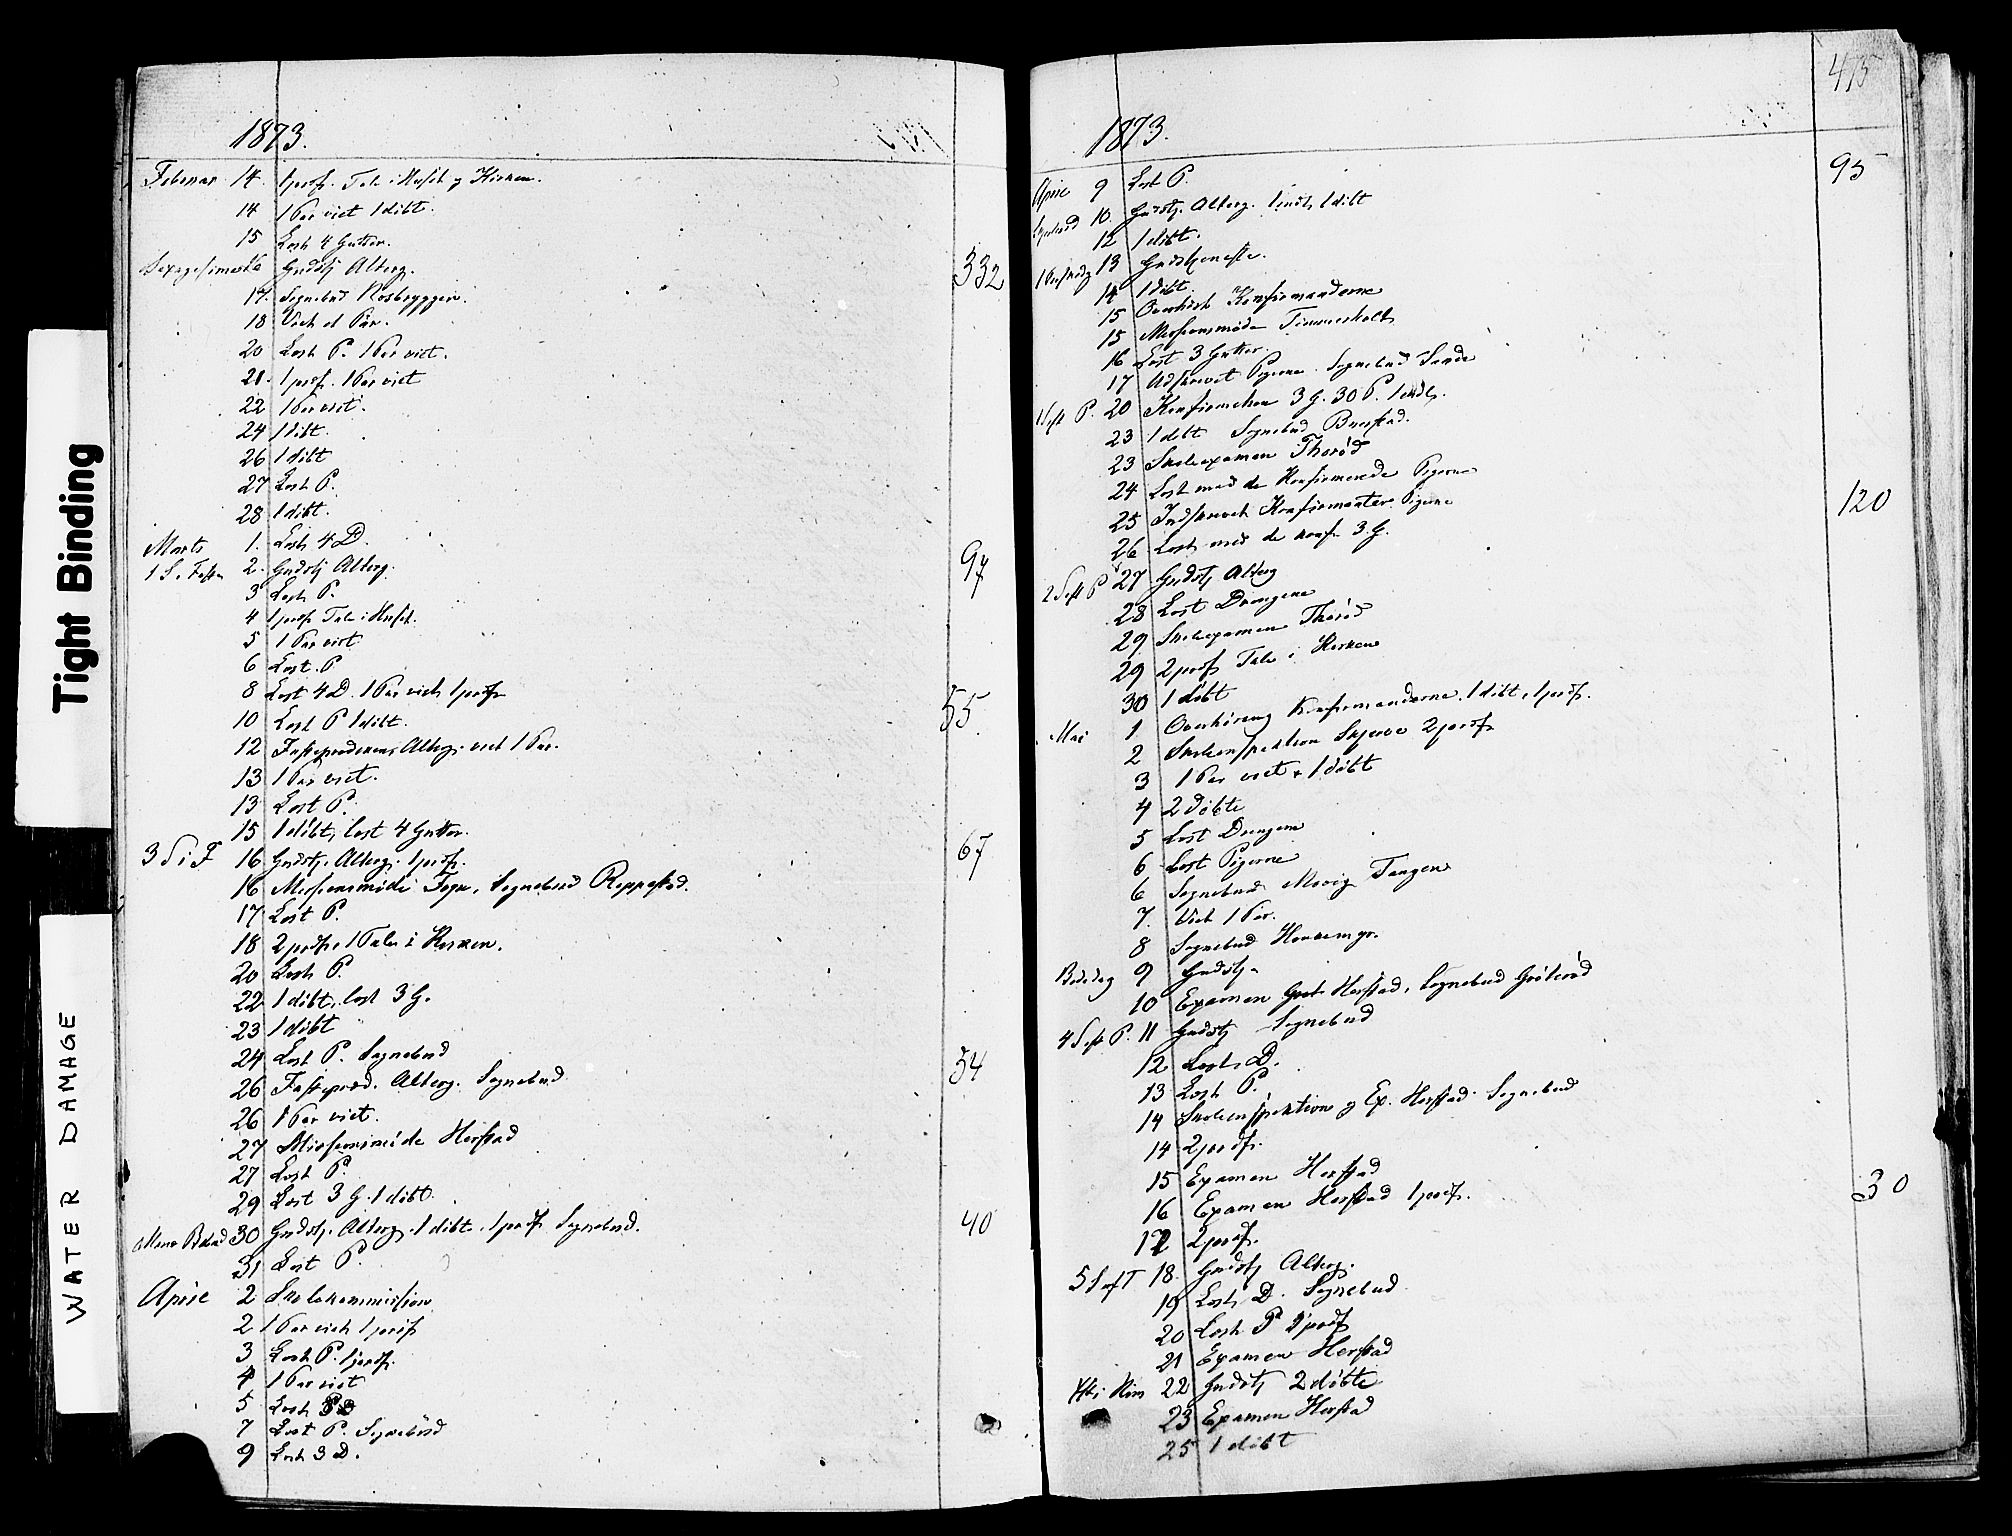 Tight Binding
WATER DAMAGE
1873.
Februar 14. 1 præs. Tale i Huset og Kirken.
14 1 Par viet 1 døbt.
15 Læst 4 Gutter.
Sexagesima 16 Gudstj. Alterg. 332
17. Sognebud
18 Viet et Par.
20 Læst P. 1 Par viet.
21. 1 præs. 1 Par viet
22 1 Par viet.
24 1 døbt.
26 1 døbt
27 Læst P.
28 1 døbt.
Marts 1. Læst 4 D.
1 S. i Fasten 2. Gudstj Alterg. 97
3 Læst P.
4 1 præs Tale i Huset.
5 1 Par viet
6 Læst. P
8 Læst 4 D. 1 Par viet 1 præs 55
10 Læst P 1 døbt.
12 Fasteprædiken, Alterg. viet 1 Par.
13 1 Par viet.
13 Læst P.
15 1 døbt, læst 4 Gutter.
3 S i F 16 Gudstj. Alterg. 1 præs. 67
16 Missionsmøde, Sognebud Reppestad.
17 Læst P.
18 2 præs, 1 Tale i Kirken.
20 Læst P.
22 1 døbt, læst 3 G.
23 1 døbt
24 Læst P. Sognebud
26 Fastepræd. Alterg. Sognebud 54
26 1 Par viet.
27 Missionsmøde Herstad
27 Læst P.
29 Læst 3 G. 1 døbt.
Mariæ Bebud 30 Gudstj. Alterg. 1 døbt. 1 præs Sognebud. 40
31 Læst P.
April 2 Skolekommission
2 1 Par viet 1 præs
3 Læst P. 1 præs.
4 1 Par viet
5 Læst 3 D
7 Læst P. Sognebud
9 Læst 3 D.
475
1873.
April 9 Læst P. 95
10. Gudstj. Alterg. 1 indl. 1 døbt
12 1 døbt.
13 Gudstjeneste.
14 1 døbt.
15 Overhørt Konfirmanderne
15 Missionsmøde
16 Læst 3 Gutter.
17 Udskrevet Pigerne. Sognebud Sande
1 S ef P. 20 Konfirmation 3 G. 30 P. 1 indl.
23 1 døbt Sognebud
23 Skoleexamen Thorød
24 Læst med de Konfirmerede Pigerne
25 Indskrevet Konfirmanter Pigerne 120
26 Læst med de konf. 3. G.
2 S ef P 27 Gudstj Alterg
28 Læst Drengene
29 Skoleexamen Thorød
29 2 præs Tale i Kirken
30 1 døbt
Mai 1. Overhøring Konfirmanderne. 1 døbt, 1 præs.
2 Skoleinspektion 2 præs
3 1 Par viet + 1 døbt
4 2 døbte
5 Læst Drengene
6 Læst Pigerne
6 Sognebud Tangen
7. Viet 1 Par.
8 Sognebud
Bededag 9 Gudstj.
10 Examen Herstad, Sognebud
4 S ef P. 11 Gudstj Sognebud
12 Læst D.
13 Læst P.
14 Skoleinspektion og Ex. Herstad. Sognebud
14 2 præs.
15 Examen Herstad
16 Examen Herstad 1 præs. 30
17 2 præs.
5 S ef P 18. Gudstj Alterg.
19 Læst D. Sognebud
20 Læst P præs
21 Examen Herstad
22 Gudstj 2 døbte
23 Examen Herstad
25 1 døbt